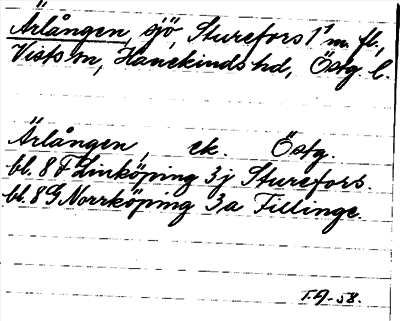 Ärlången, sjö, Sturefors 1¹ m. fl.,
Vists sn, Hanekinds hd, Östg. l.
Ärlången, ek. Östg.
bl. 8 F Linköping 3j Sturefors.
bl. 8 G Norrköping 3a Fillinge.
T.A-58.